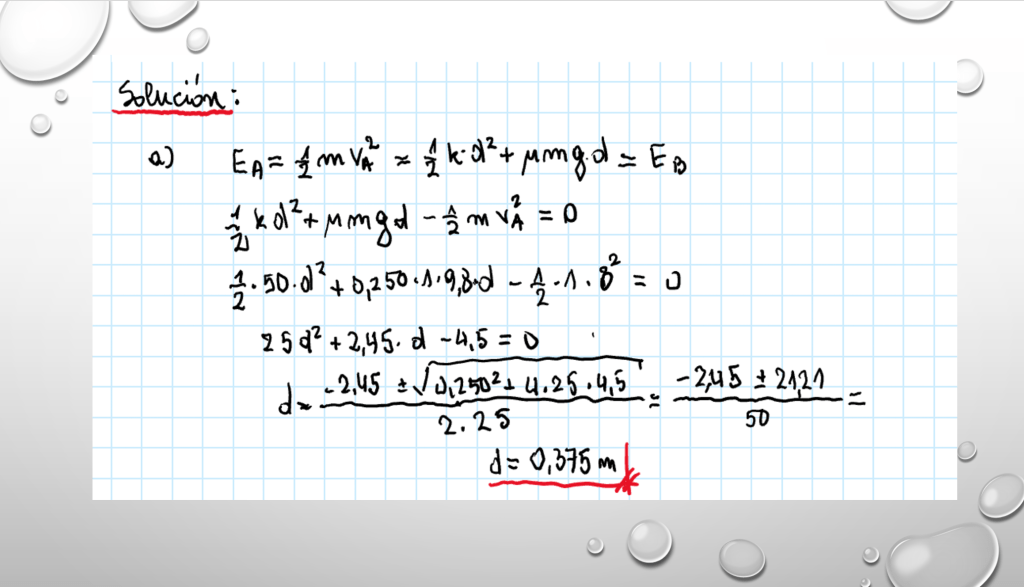 Solución:
a) E_A = 1/2 m v_A² ≈ 1/2 k·d² + μmg·d = E_B
1/2 k d² + μmgd - 1/2 m v_A² = 0
1/2 · 50 · d² + 0,250 · 1 · 9,8 · d - 1/2 · 1 · 8² = 0
25d² + 2,45 · d - 4,5 = 0
d = (-2,45 ± √(0,250² + 4 · 25 · 4,5)) / (2 · 25) = (-2,45 ± 21,21) / 50 =
d = 0,375 m